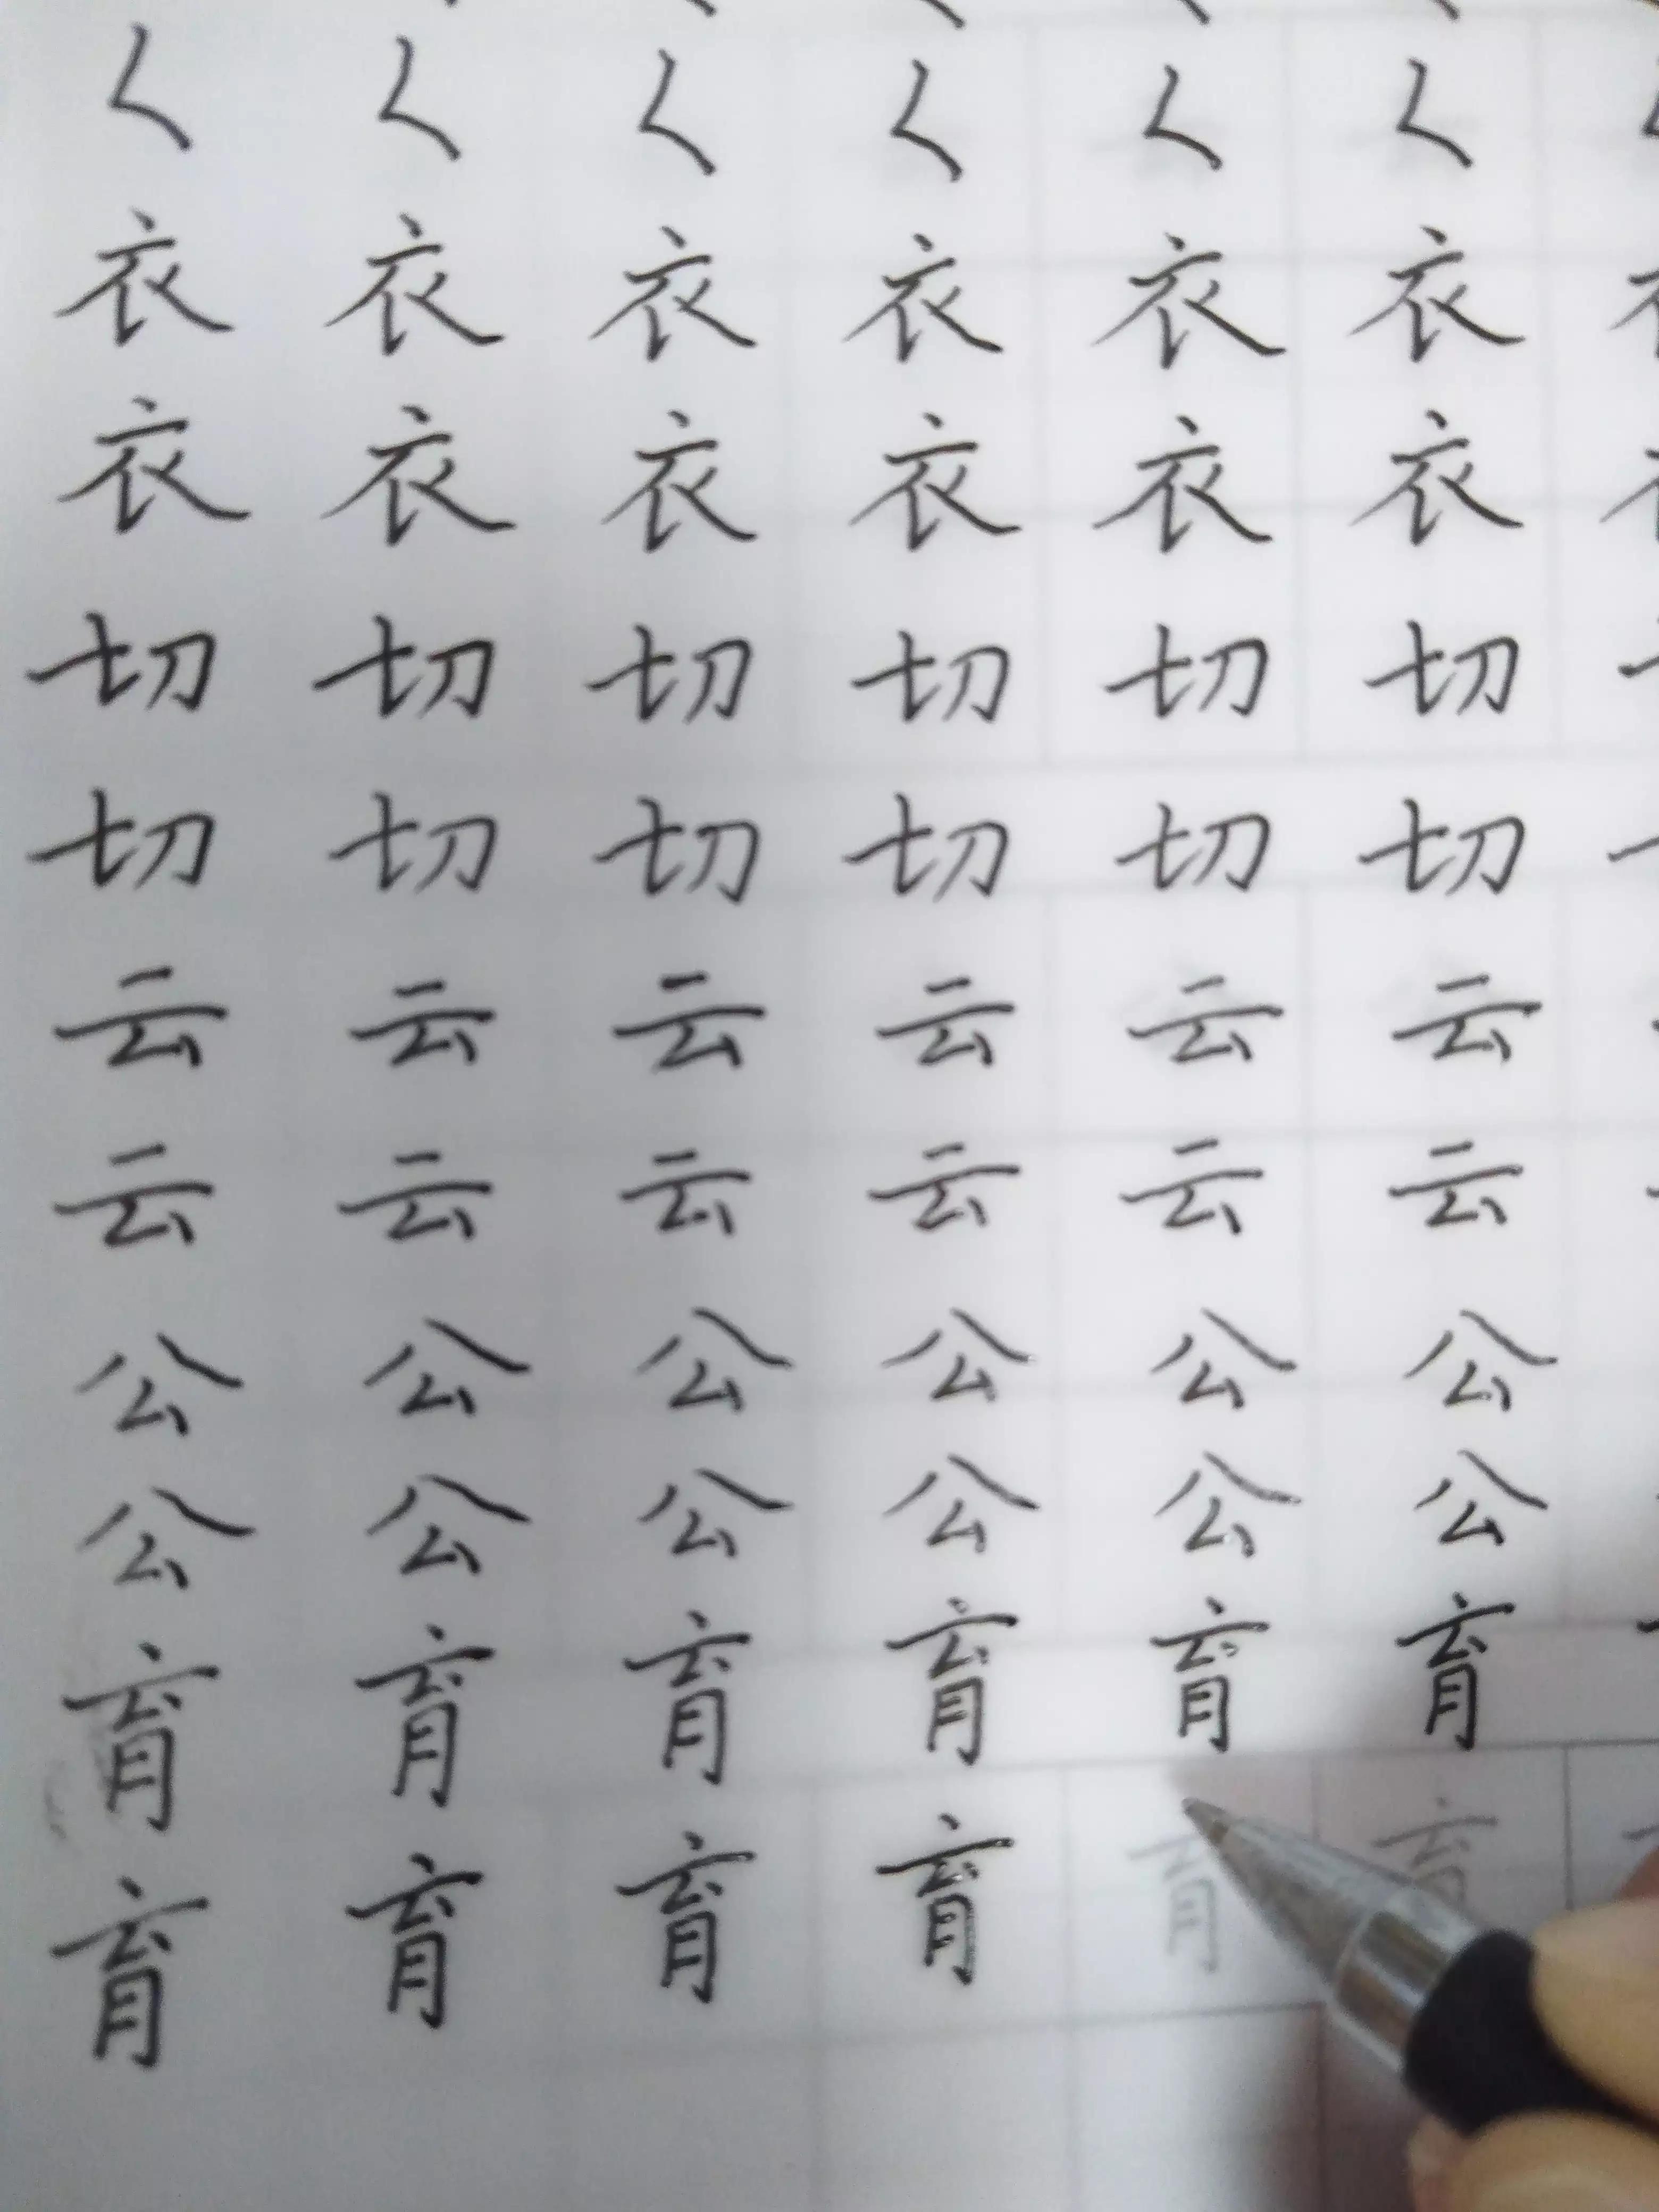 ㄑ ㄑ ㄑ ㄑ ㄑ ㄑ
衣 衣 衣 衣 衣 衣
衣 衣 衣 衣 衣 衣
切 切 切 切 切 切
切 切 切 切 切 切
云 云 云 云 云 云
云 云 云 云 云 云
公 公 公 公 公 公
公 公 公 公 公 公
育 育 育 育 育 育
育 育 育 育 育 育